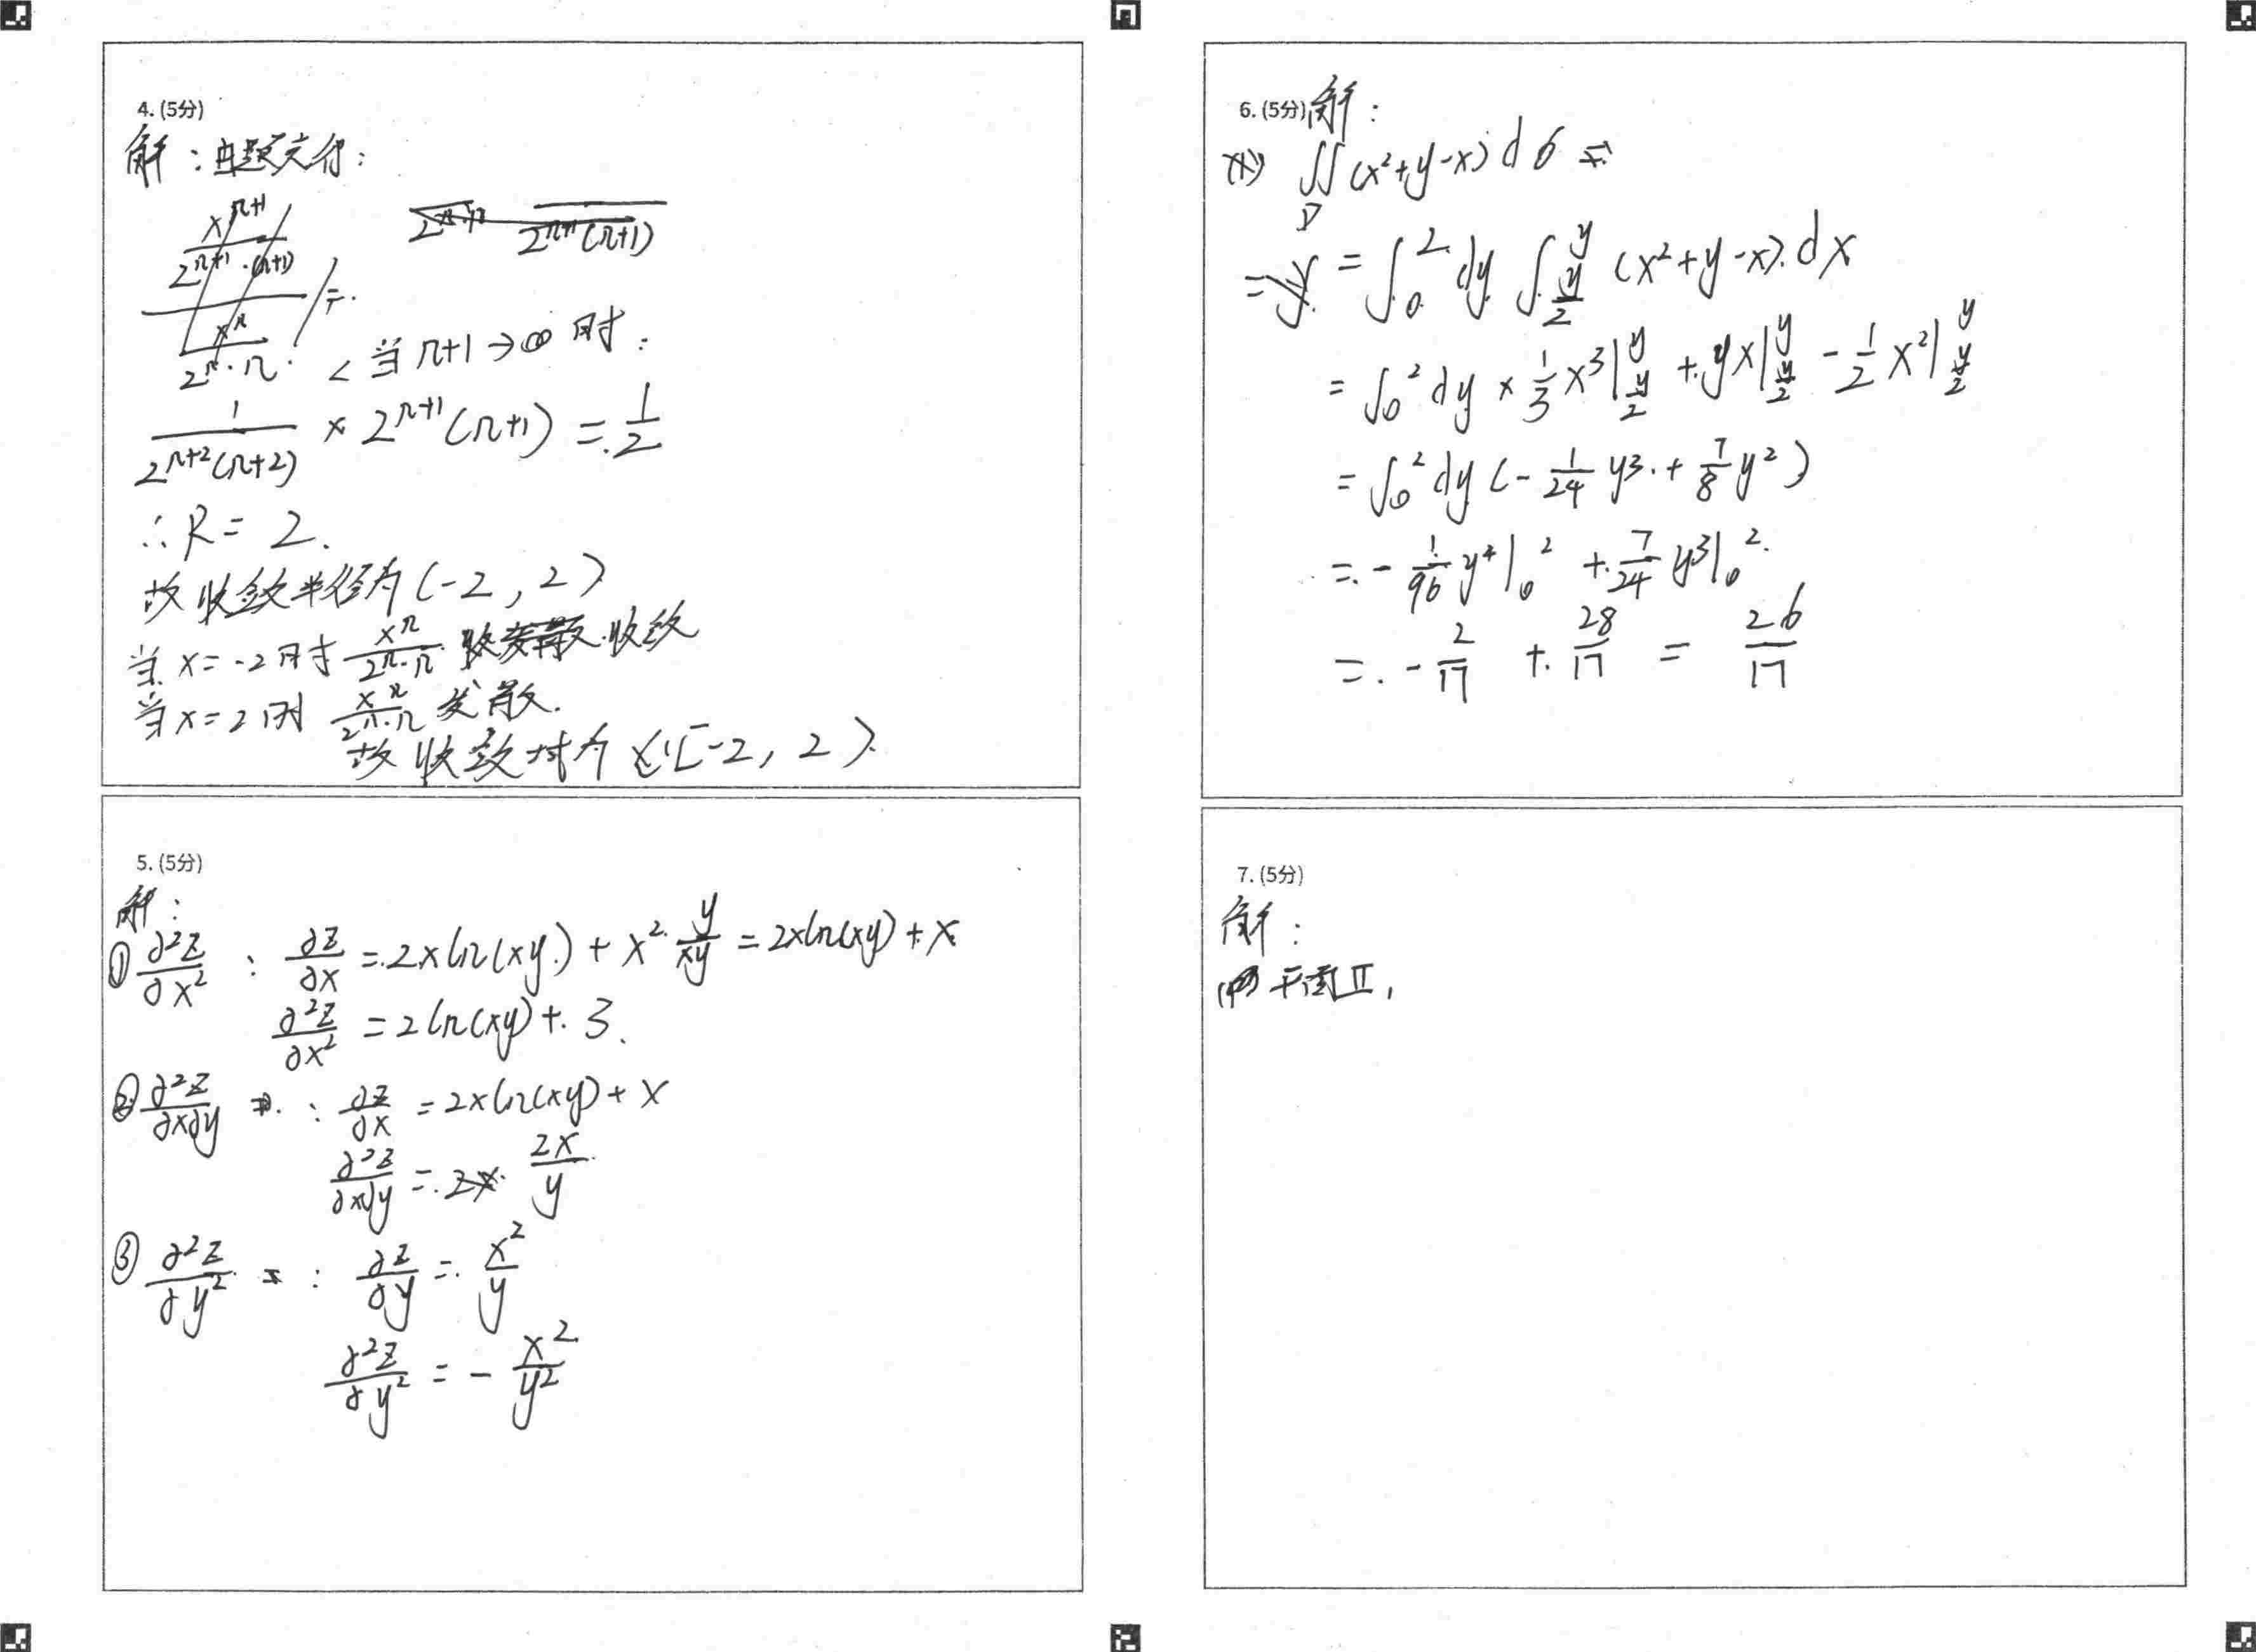 4. (5分)
解：由题意得：
当 n+1→∞ 时：
1/(2^{n+2}(n+2)) × 2^{n+1}(n+1) = 1/2
∴R = 2.
故收敛半径为(-2, 2)
当 x=-2时 x^n/(2^n·n) 收敛
当 x=2时 x^n/(2^n·n) 发散.
故收敛域为 [-2, 2).
5. (5分)
解：
① ∂²z/∂x² : ∂z/∂x = 2x ln(xy) + x²·y/xy = 2x ln(xy) + x
∂²z/∂x² = 2 ln(xy) + 3.
② ∂²z/∂x∂y : ∂z/∂x = 2x ln(xy) + x
∂²z/∂x∂y = 2x/y
③ ∂²z/∂y² : ∂z/∂y = x²/y
∂²z/∂y² = - x²/y²
6. (5分) 解：
∬_D (x²+y-x) dσ
= ∫_0^2 dy ∫_{y/2}^y (x²+y-x) dx
= ∫_0^2 dy × 1/3 x³|_{y/2}^y + yx|_{y/2}^y - 1/2 x²|_{y/2}^y
= ∫_0^2 dy (- 1/24 y³ + 7/8 y²)
= - 1/96 y⁴|_0^2 + 7/24 y³|_0^2
= - 2/17 + 28/17 = 26/17
7. (5分)
解：
平面Π₁